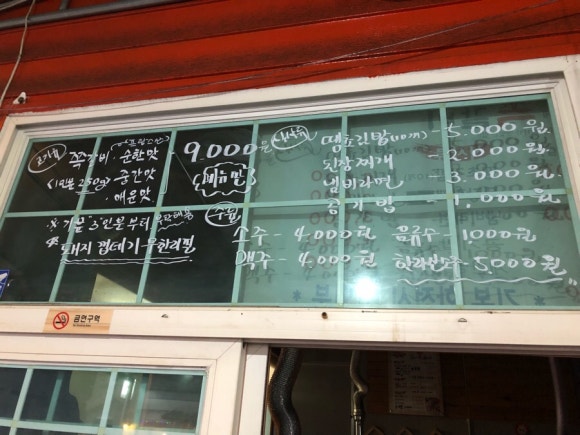 쪽갈비 순한맛 - 9,000원
(1인분 250g) 중간맛
매운맛
메뉴판
※ 기본 "3"인분부터
※ 돼지 껍데기 무한리필
땡초김밥(10개) - 5.000원
된장찌개 - 2.000원
냄비라면 - 3,000원
공기밥 - 1,000원
소주 - 4,000원
음료수 - 1,000원
맥주 - 4,000원
한라산소주 5,000원
금연구역